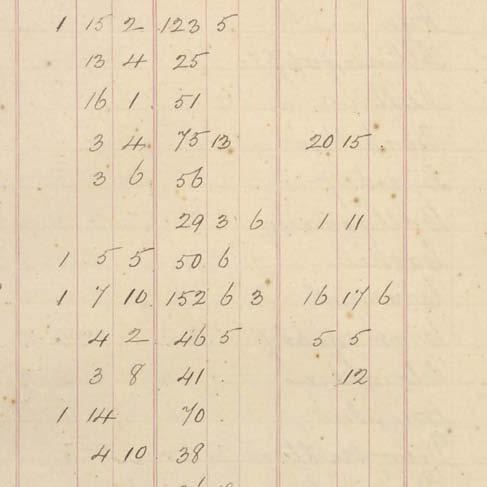 1 15 2 123 5
13 4 25
16 1 51
3 4 75 13 20 15
3 6 56
29 3 6 1 11
1 5 5 50 6
1 7 10 152 6 3 16 17 6
4 2 46 5 5 5
3 8 41 12
1 14 70
4 10 38